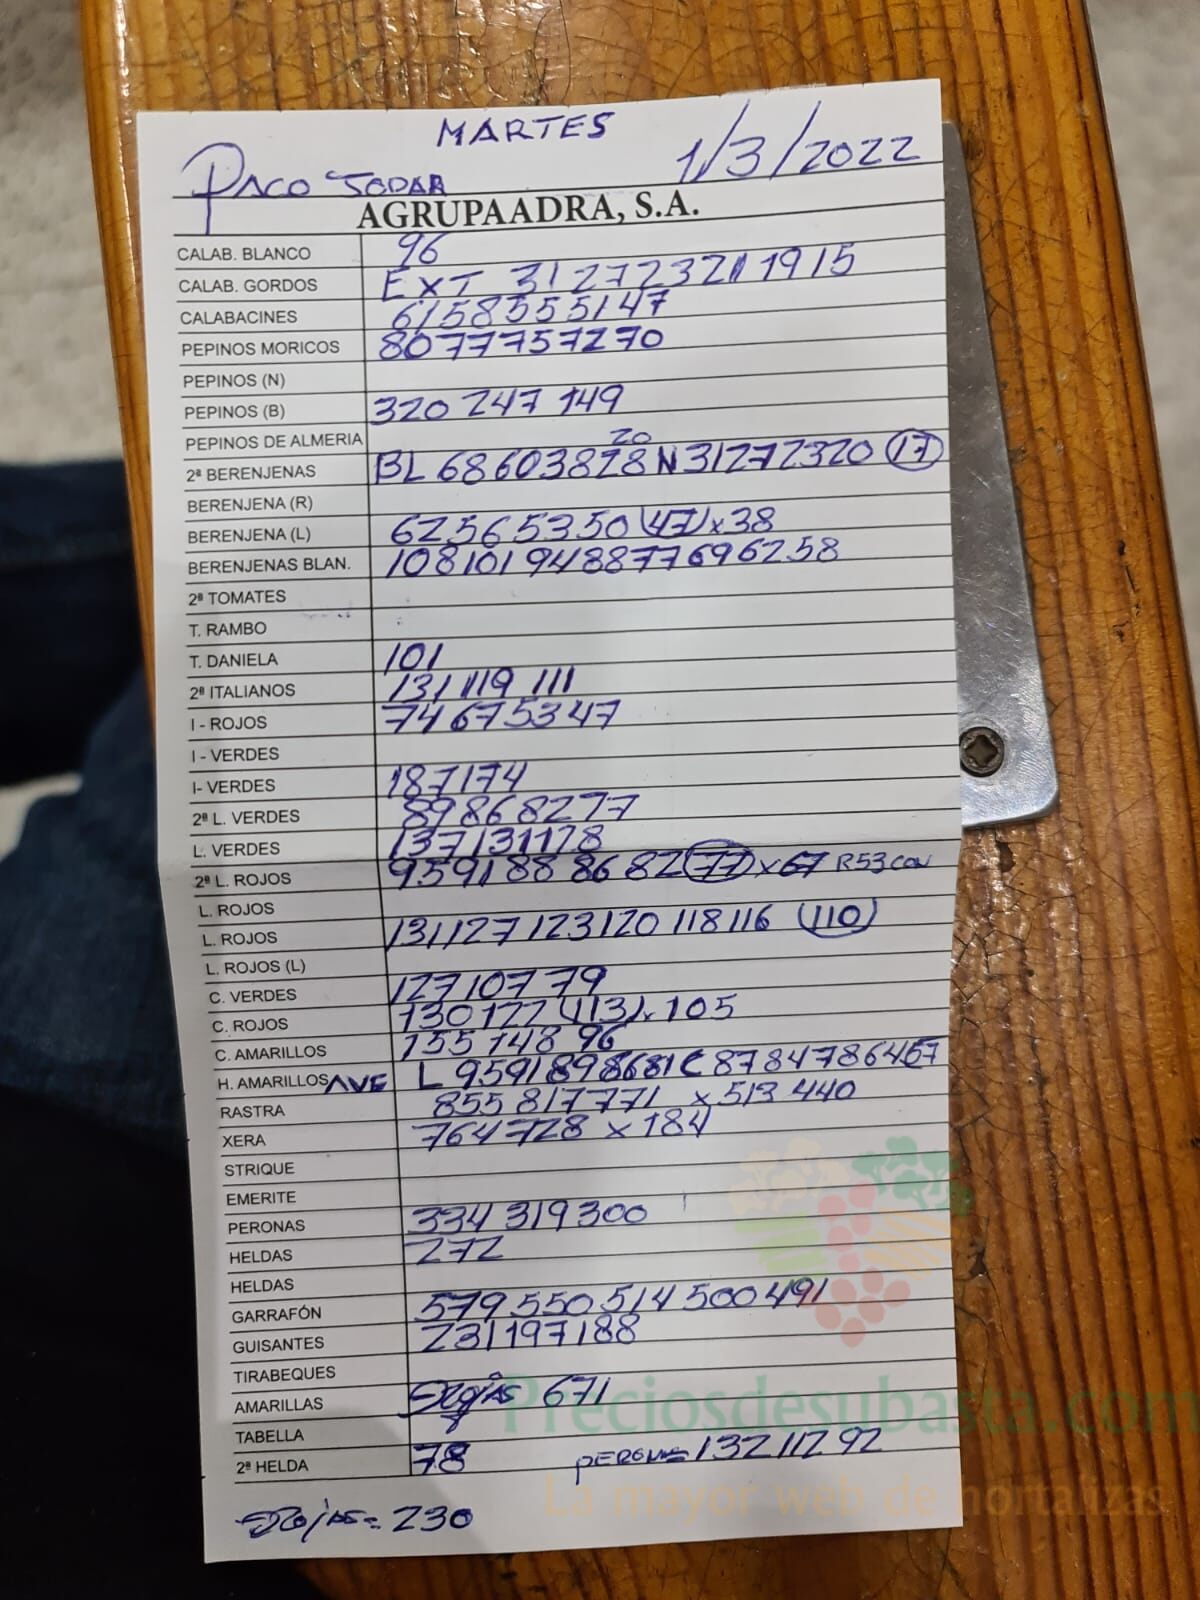 MARTES
PACO JODAR 1/3/2022
AGRUPAADRA, S.A.
CALAB. BLANCO 96
CALAB. GORDOS EXT 31 27 23 21 19 15
CALABACINES 61 58 55 51 47
PEPINOS MORICOS 80 77 75 72 70
PEPINOS (N)
PEPINOS (B) 320 247 149
PEPINOS DE ALMERIA 20
2ª BERENJENAS BL 68 60 38 28 N 31 27 23 20 (17)
BERENJENA (R)
BERENJENA (L) 62 56 53 50 (47) x 38
BERENJENAS BLAN. 108 101 94 88 77 69 62 58
2ª TOMATES
T. RAMBO
T. DANIELA 101
2ª ITALIANOS 131 119 111
I - ROJOS 74 67 53 47
I - VERDES
I- VERDES 187 174
2ª L. VERDES 89 86 82 77
L. VERDES 137 131 128
2ª L. ROJOS 95 91 88 86 82 (77) x 67 R53
L. ROJOS
L. ROJOS 131 127 123 120 118 116 (110)
L. ROJOS (L)
C. VERDES 127 107 79
C. ROJOS 130 122 (113) x 105
C. AMARILLOS 155 148 96
H. AMARILLOS AVE L 95 91 89 86 81 C 87 84 78 64 67
RASTRA 855 817 771 x 513 440
XERA 764 728 x 184
STRIQUE
EMERITE
PERONAS 334 319 300
HELDAS 272
HELDAS
GARRAFÓN 579 550 514 500 491
GUISANTES 231 197 188
TIRABEQUES
AMARILLAS 671
TABELLA
2ª HELDA 78 132 112 92
230
Preciosdesubasta.com
La mayor web de hortalizas